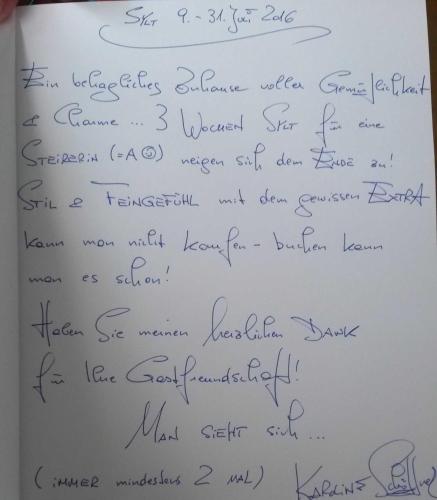 SYLT 9. - 31. Juli 2016
Ein behagliches Zuhause voller Gemütlichkeit
& Charme ... 3 WOCHEN SYLT für eine
STEIRERIN (=A☺) neigen sich dem ENDE zu!
STIL & FEINGEFÜHL mit dem gewissen EXTRA
kann man nicht kaufen - buchen kann
man es schon!
Haben Sie meinen herzlichen DANK
für Ihre Gastfreundschaft!
MAN SIEHT sich ...
(IMMER mindestens 2 MAL) KAROLINE